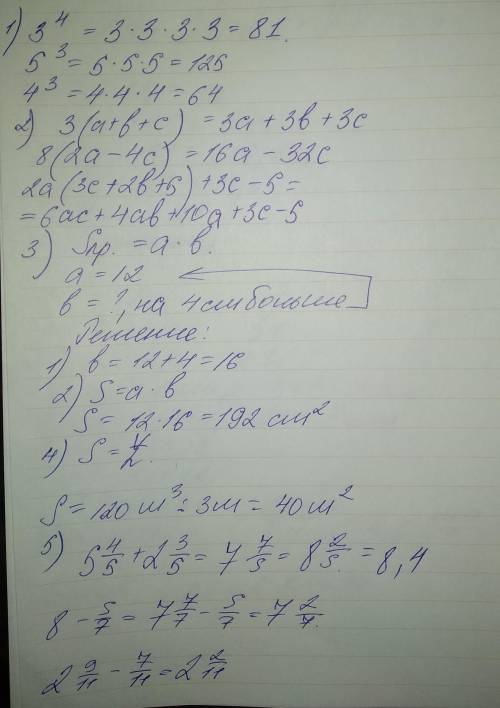 1) 3⁴ = 3·3·3·3 = 81.
5³ = 5·5·5 = 125
4³ = 4·4·4 = 64
2) 3(a+b+c) = 3a+3b+3c
8(2a-4c) = 16a-32c
2a(3c+2b+5)+3c-5=
=6ac+4ab+10a+3c-5
3) Sпр. = a·b.
a=12
b=?, на 4см больше
Решение:
1) b=12+4=16
2) S=a·b
S=12·16=192 см²
4) S=
S=120 м³:3м=40м²
5) 5 4/5 + 2 3/5 = 7 7/5 = 8 2/5 = 8,4
8 - 5/7 = 7 7/7 - 5/7 = 7 2/7.
2 9/11 - 7/11 = 2 2/11